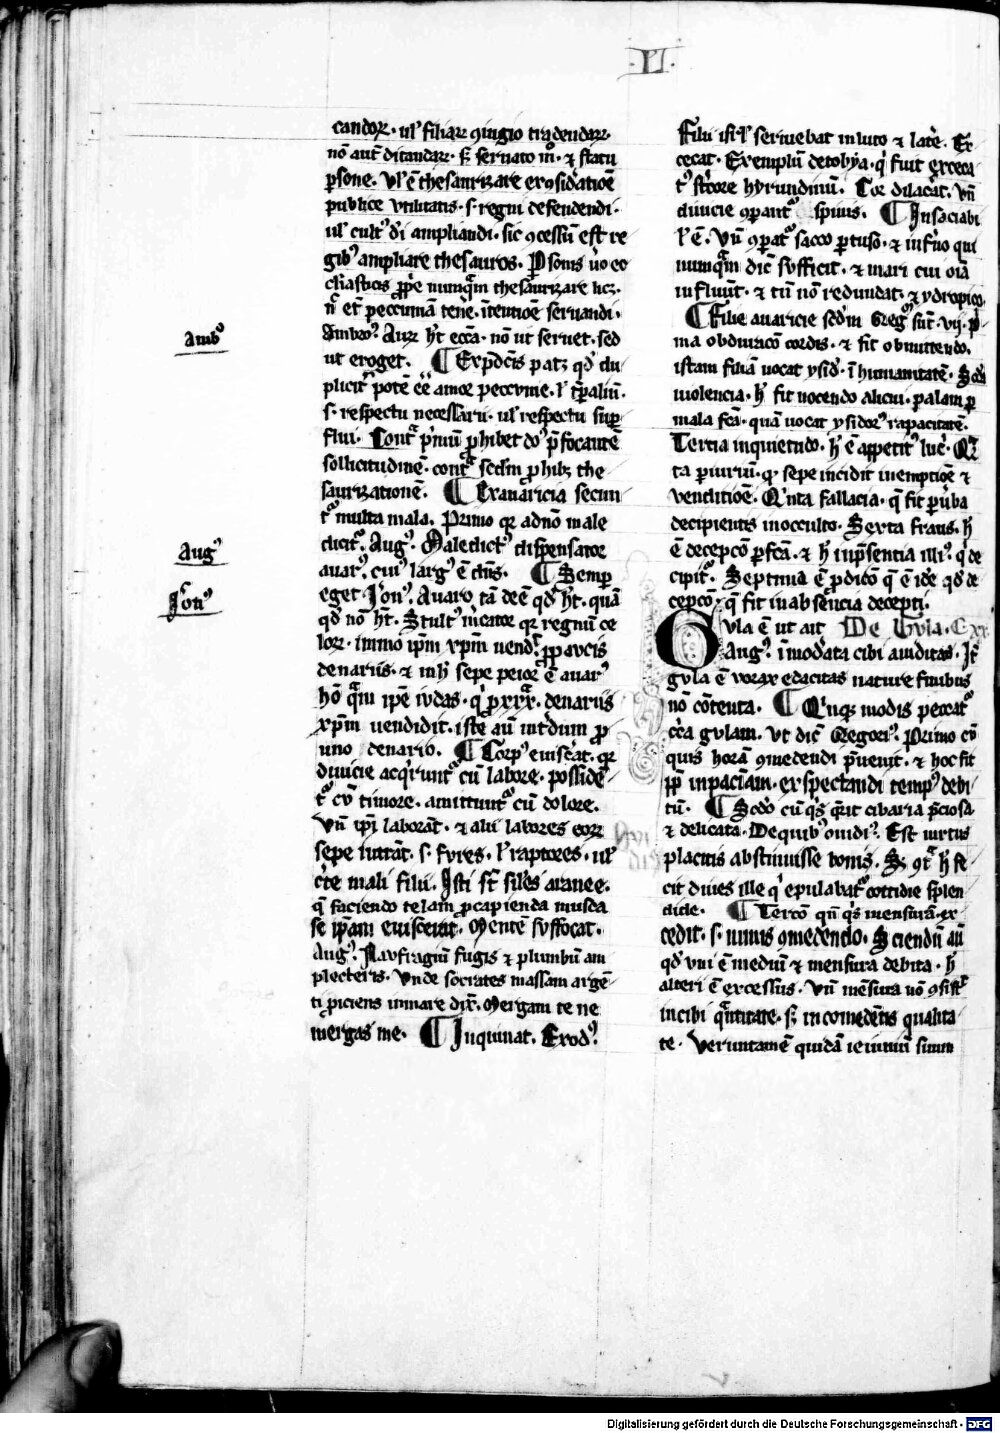 ·VI·
candoꝝ· ul' filiaꝝ ꝯiugio tradendaꝝ·
nō aut̄ ditandaꝝ· sꝫ seruato mͦ· ⁊ statu
ꝑsone. Ul' ē thesaurizare
publice vtilitatis· s· regni defendendi·
ul' cult᷒ d'i ampliandi· sic ꝯcessū est re
gib᷒ ampliare thesauros. Psonis u'o ec
numq̄m thesaurizare licꝫ·
n̄ et̄ peccuniā tene'· ītentiōe seruandi·
Ambro᷒. Auꝝ h't ecc̄a· nō ut seruet· sed
ut eroget. ¶ qd' du
plicit̉ potē ēē amor peccunie· l' tp̄aliū·
s· respectu necessarii· ul' respectu suꝑ
flui. Cont̉ p'mū ꝓhibet do᷒ p̄focantē
sollicitudinē· cont̉ scd'm ꝓhibꝫ the
saurizationē. ¶ Ex auaricia secun
t̉ multa mala. Primo qꝛ ad nō male
dicit̉. Aug᷒. Maledict᷒ dispensator
auar᷒. cui᷒ larg᷒ ē dn̄s. ¶ Semp
eget. Ieron᷒. Auaro tā deē qd' h't· quā
qd' nō h't. Stult᷒ m'cator qꝛ regnū ce
loꝝ· immo ip̄m xp̄m uend᷒ ꝓ paucis
denariis· ⁊ in h' sepe peior ē auar᷒
hō q̄m ip̄e iudas· q' ꝑ xxx· denariis
xp̄m uendidit· iste aū int'dum ꝓ
uno denario. ¶ Corp᷒ euiscẽat· qꝛ
diuicie acq'runt̉ cū labore· posside
t̉ cū timore· amittunt̉ cū dolore.
Vn̄ ip̄i laborāt· ⁊ alii labores eoꝝ
sepe intrāt· s· fures· l' raptores· ul'
c'te mali filii. Isti st̄ sil'es aranee·
q̄ faciendo telam ꝓ capienda musca
se ip̄am euiscerat· Mentē suffocat·
Aug᷒. Naufragiū fugis ⁊ plumbū am
plecteris· Vnde socrates massam argē
ti ꝓiciens in mare dix̄. Mergam te ne
mergas me. ¶ Inquinat. Exod᷒.
Amb᷒
Aug᷒
Iron᷒
Filii isr'l seruiebat in luto ⁊ lat'e· Ex
cecat· Exemplū de tobya· q' fuit exceca
t᷒ st'core hyrundinū. Cor dilac'at. Vn̄
diuicie ꝯparant̉ spinis. ¶ Insaciabi
l' ē. Vn̄ ꝯparat̉ sacco ꝑtuso· ⁊ inf'no qui
numq̄m dic̄ sufficit· ⁊ mari cui oīa
influūt· ⁊ tn̄ nō redundat· ⁊ ydropico
¶ Filie auaricie sed'm Greg᷒ sūt· vij· p'
ma obduracō cordis· ⁊ fit obmittendo·
istam filiā uocat ysid'· īhumanitatē· Scd'a
uiolencia· h' fit nocendo alicui· palam ꝑ
mala fc̄a· quā uocat ysidor᷒ rapacitatē·
Tertia inquietudo· h' ē appetit᷒ luc'· Q̉r
ta periuriū· q sepe incidit in emptiōe ⁊
venditiōe. Q'nta fallacia· q̄ fit ꝑ u'ba
decipientis in occulto· Sexta fraus· h'
ē decepcō ꝑ fc̄a· ⁊ h' in p̄sentia illi᷒ q' de
cipit̉. Septima ē ꝓdicō q̄ ē ide qd' de
cepcō· q̄ fit in absēncia decepti.
Gula ē ut ait De Gula· Cxx
Aug᷒. īmod'ata cibi auiditas· It̄
gula ē vorax edacitas nature finibus
nō cōtenta. ¶ Q'nqꝫ modis peccat̉
c'ca gulam. Vt dic̄ Gregori᷒. Primo cū
quis horā ꝯmedendi p̄uenit· ⁊ hoc fit
ꝓp̄ inpacīam· exspectandi temp᷒ debi
tū. ¶ Scd'o cū q's q̄rit cibaria p̄ciosa
⁊ delicata· De quib᷒ ouidi᷒. Est uirtus
placitis abstinuisse bonis. Sꝫ ꝯt̉ h' fe
cit diues ille q' epulabat̉ cottidie splen
dide. ¶ Tercō qn̄ q's mensurā ex
cedit· s· nimis ꝯmedendo· Sciendū aū
qd' uni ē mediū ⁊ mensura debita· h'
alteri ē excessus. Vn̄ mēsura nō ꝯsist̉
in cibi q̉ntitate· sꝫ in comedētis qualita
te. Veruntamē quidā ieiuniū suum
Digitalisierung gefördert durch die Deutsche Forschungsgemeinschaft - DFG